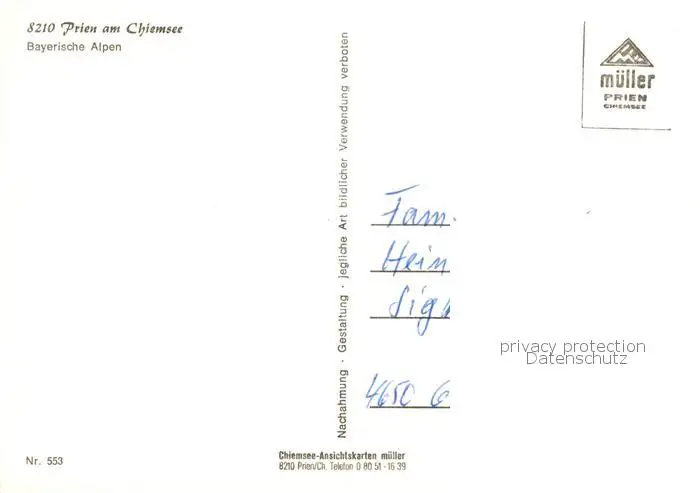 8210 Prien am Chiemsee
Bayerische Alpen
müller
PRIEN
CHIEMSEE
Nachahmung · Gestaltung · jegliche Art bildlicher Verwendung verboten
Fam.
Hein
Sig
privacy protection
Datenschutz
4650 G
Nr. 553
Chiemsee-Ansichtskarten müller
8210 Prien/Ch. Telefon 0 80 51 - 16 39